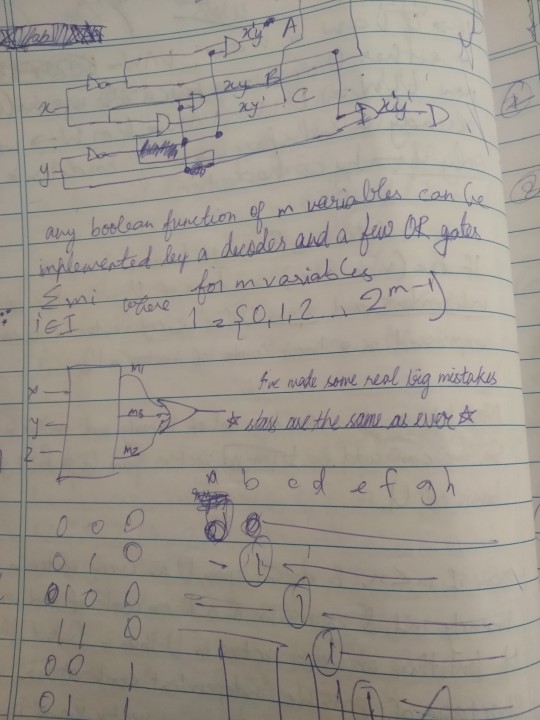 x'y A
xy B
x
xy' C
x'y'
y
any boolean function of m variables can be
implemented by a decoder and a few OR gates
Σmi where for m variables
i∈I I = {0,1,2 ... 2^m-1}
m1
x
I've made some real big mistakes
y
m3
☆ stays are the same as ever ☆
z
m2
b c d e f g h
0 0 0
0 1 0 1
0 1 0 0 1
1 1 0 1
0 0 1
0 1 1 1